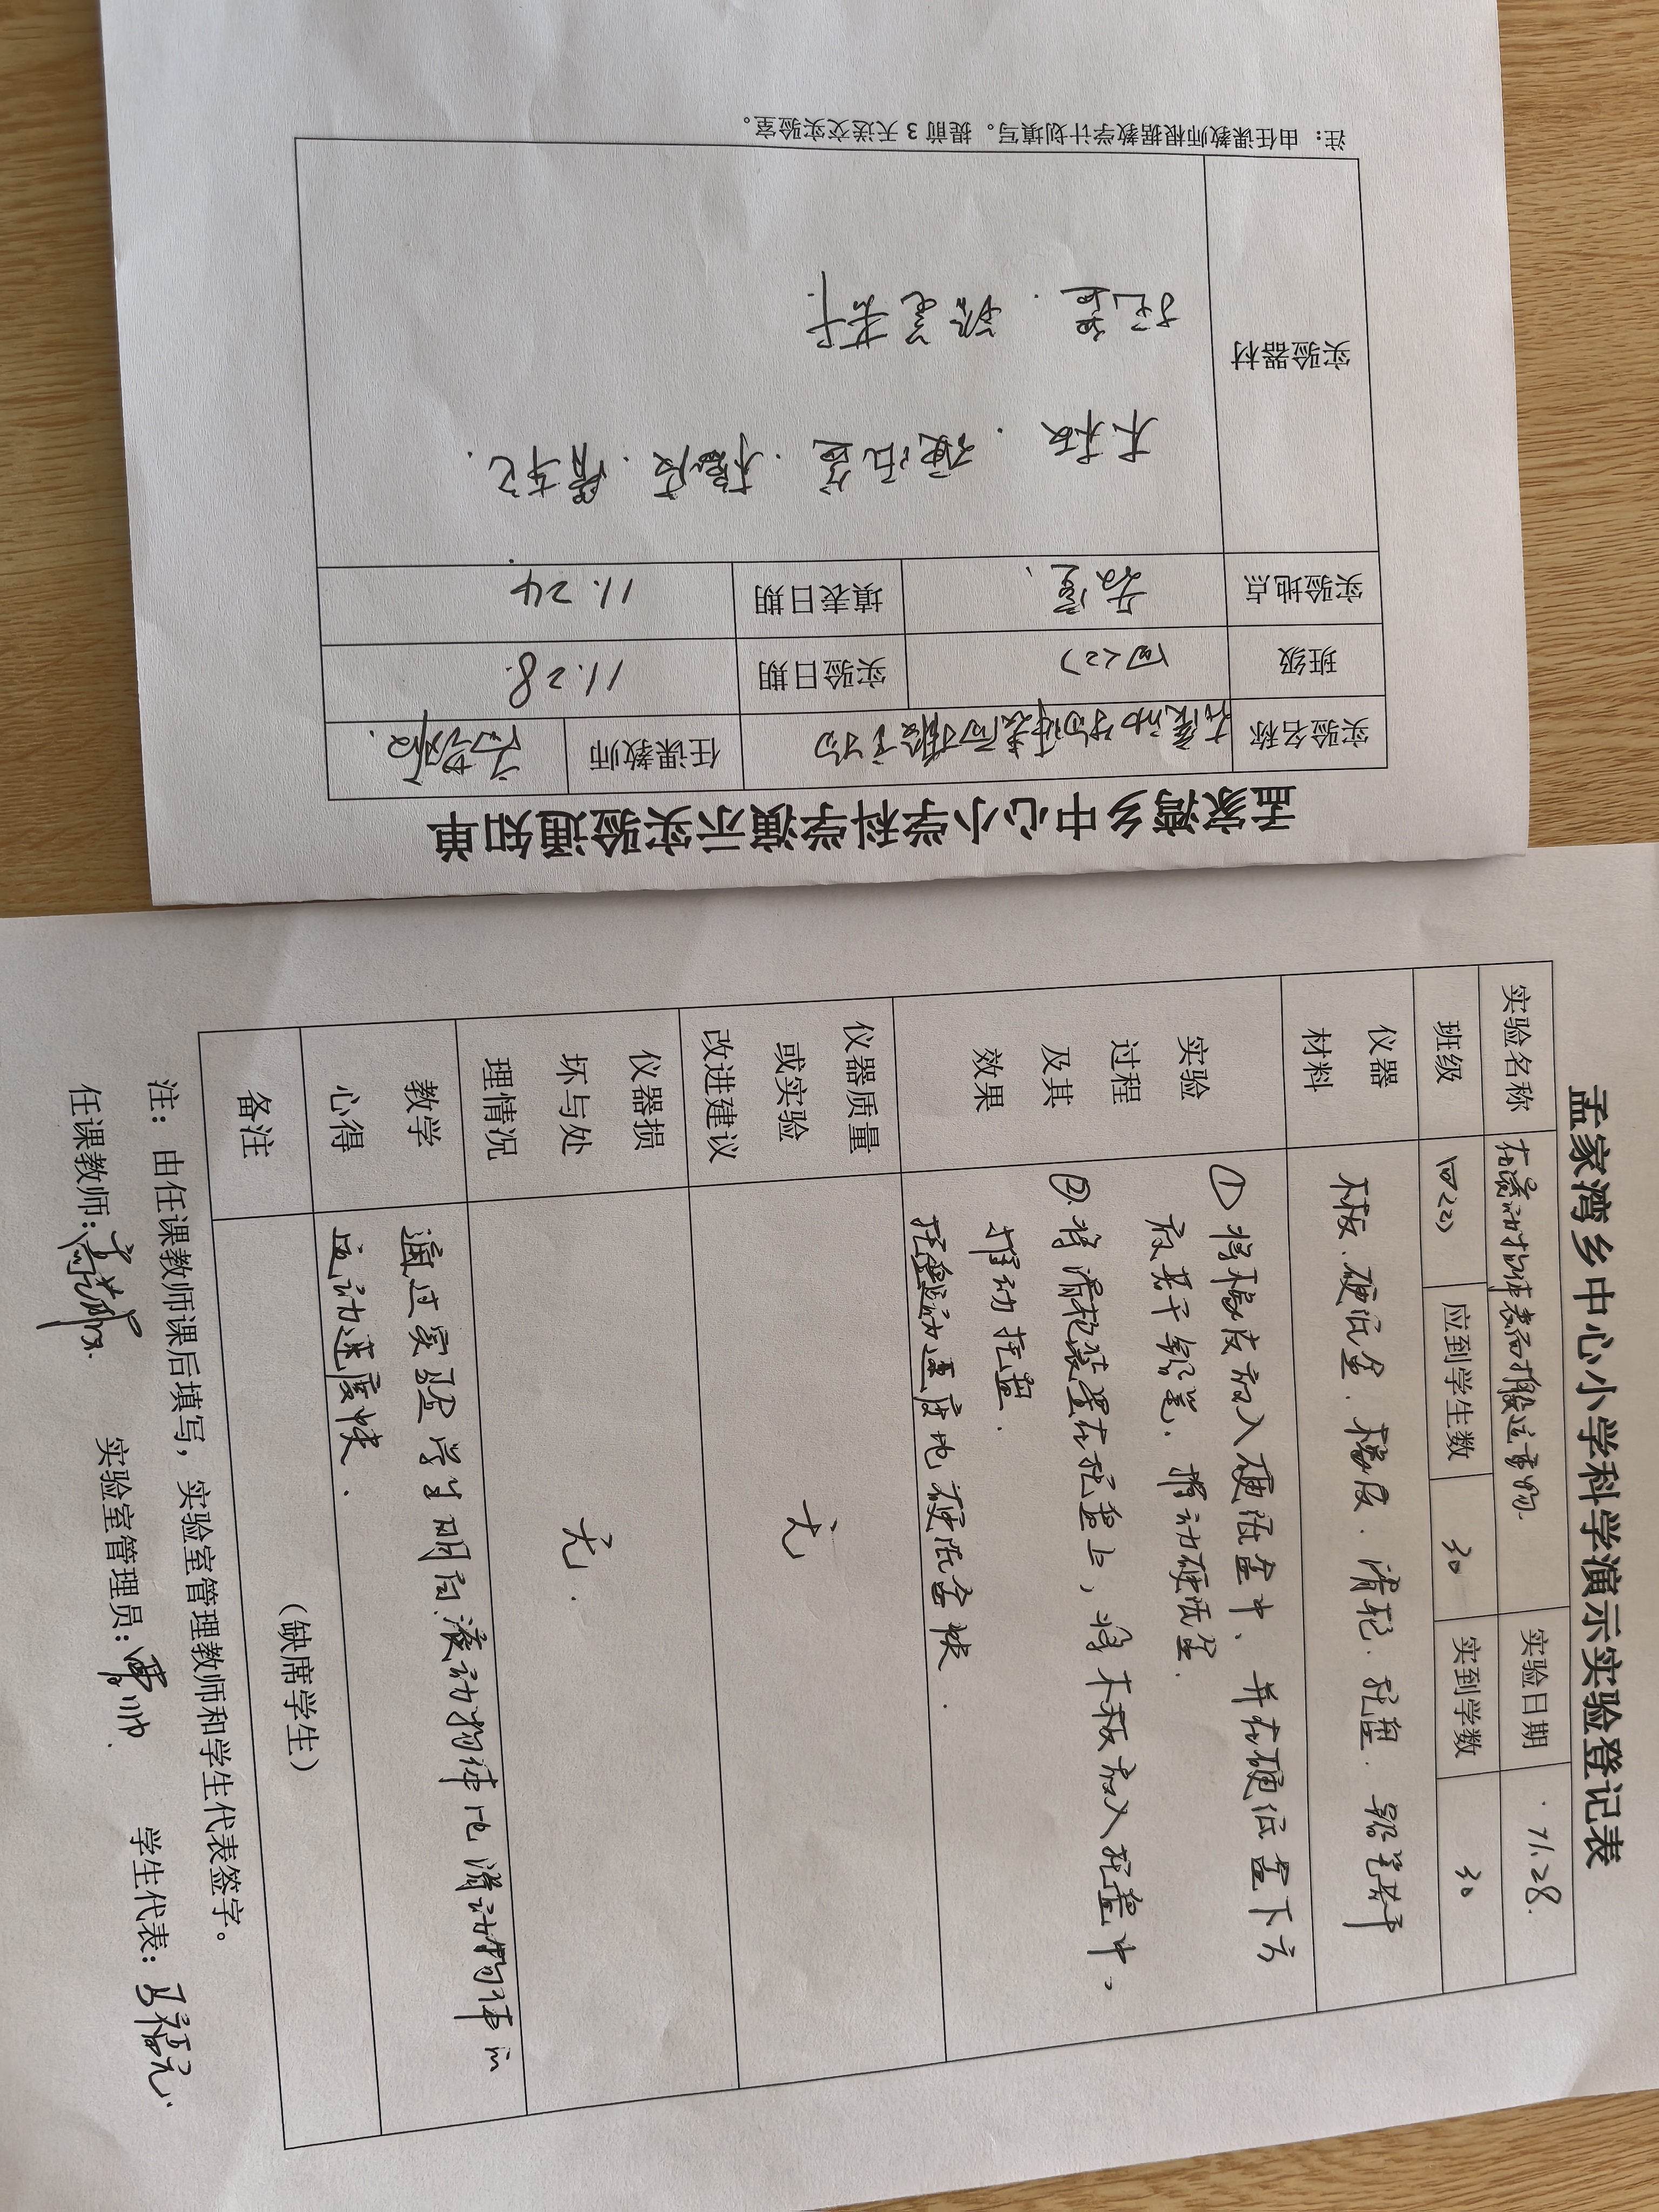 孟家湾乡中心小学科学演示实验通知单
实验名称 在滚动物体表面搬重物 任课教师
班级 四(2) 实验日期 11.28.
实验地点 教室、 填表日期 11.24
实验器材
木板. 硬纸盒. 橡皮. 滑轮.
托盘. 铅笔若干.
注：由任课教师根据教学计划填写。提前 3 天送交实验室。
孟家湾乡中心小学科学演示实验登记表
实验名称 在滚动物体表面搬运重物. 实验日期 11.28.
班级 四(2) 应到学生数 30 实到学数 30
仪器材料 木板. 硬纸盒. 橡皮. 滑轮. 托盘. 铅笔若干
实验过程及其效果
① 将橡皮放入硬纸盒中、并在硬纸盒下方
放若干铅笔. 推动硬纸盒.
②. 将滑轮装置在托盘上, 将木板放入托盘中,
推动托盘.
托盘运动速度比硬纸盒快.
仪器质量或实验改进建议 无
仪器损坏与处理情况 无.
教学心得
通过实验学生明白.滚动物体比滑动物体的
运动速度快.
备注 （缺席学生）
注：由任课教师课后填写，实验室管理教师和学生代表签字。
任课教师: 实验室管理员: 学生代表: